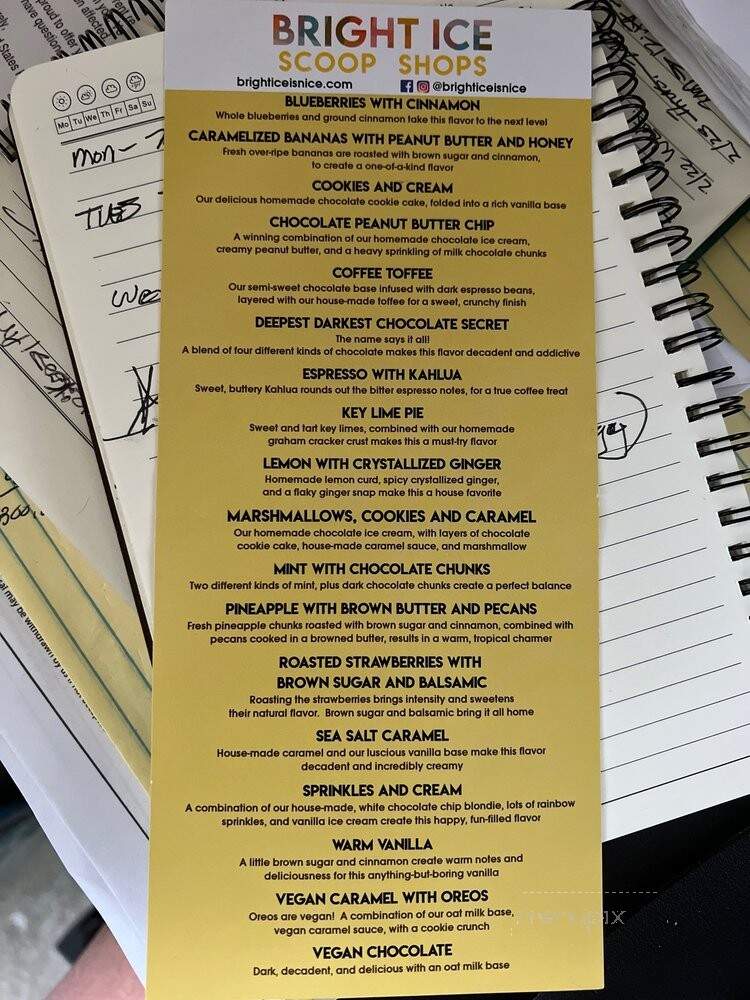 BRIGHT ICE
SCOOP SHOPS
brighticeisnice.com
@brighticeisnice
BLUEBERRIES WITH CINNAMON
Whole blueberries and ground cinnamon take this flavor to the next level
CARAMELIZED BANANAS WITH PEANUT BUTTER AND HONEY
Fresh over-ripe bananas are roasted with brown sugar and cinnamon,
to create a one-of-a-kind flavor
COOKIES AND CREAM
Our delicious homemade chocolate cookie cake, folded into a rich vanilla base
CHOCOLATE PEANUT BUTTER CHIP
A winning combination of our homemade chocolate ice cream,
creamy peanut butter, and a heavy sprinkling of milk chocolate chunks
COFFEE TOFFEE
Our semi-sweet chocolate base infused with dark espresso beans,
layered with our house-made toffee for a sweet, crunchy finish
DEEPEST DARKEST CHOCOLATE SECRET
The name says it all!
A blend of four different kinds of chocolate makes this flavor decadent and addictive
ESPRESSO WITH KAHLUA
Sweet, buttery Kahlua rounds out the bitter espresso notes, for a true coffee treat
KEY LIME PIE
Sweet and tart key limes, combined with our homemade
graham cracker crust makes this a must-try flavor
LEMON WITH CRYSTALLIZED GINGER
Homemade lemon curd, spicy crystallized ginger,
and a flaky ginger snap make this a house favorite
MARSHMALLOWS, COOKIES AND CARAMEL
Our homemade chocolate ice cream, with layers of chocolate
cookie cake, house-made caramel sauce, and marshmallow
MINT WITH CHOCOLATE CHUNKS
Two different kinds of mint, plus dark chocolate chunks create a perfect balance
PINEAPPLE WITH BROWN BUTTER AND PECANS
Fresh pineapple chunks roasted with brown sugar and cinnamon, combined with
pecans cooked in a browned butter, results in a warm, tropical charmer
ROASTED STRAWBERRIES WITH
BROWN SUGAR AND BALSAMIC
Roasting the strawberries brings intensity and sweetens
their natural flavor. Brown sugar and balsamic bring it all home
SEA SALT CARAMEL
House-made caramel and our luscious vanilla base make this flavor
decadent and incredibly creamy
SPRINKLES AND CREAM
A combination of our house-made, white chocolate chip blondie, lots of rainbow
sprinkles, and vanilla ice cream create this happy, fun-filled flavor
WARM VANILLA
A little brown sugar and cinnamon create warm notes and
deliciousness for this anything-but-boring vanilla
VEGAN CARAMEL WITH OREOS
Oreos are vegan! A combination of our oat milk base,
vegan caramel sauce, with a cookie crunch
VEGAN CHOCOLATE
Dark, decadent, and delicious with an oat milk base
Mo Tu We Th Fr Sa Su
MON-
TUES
menupix